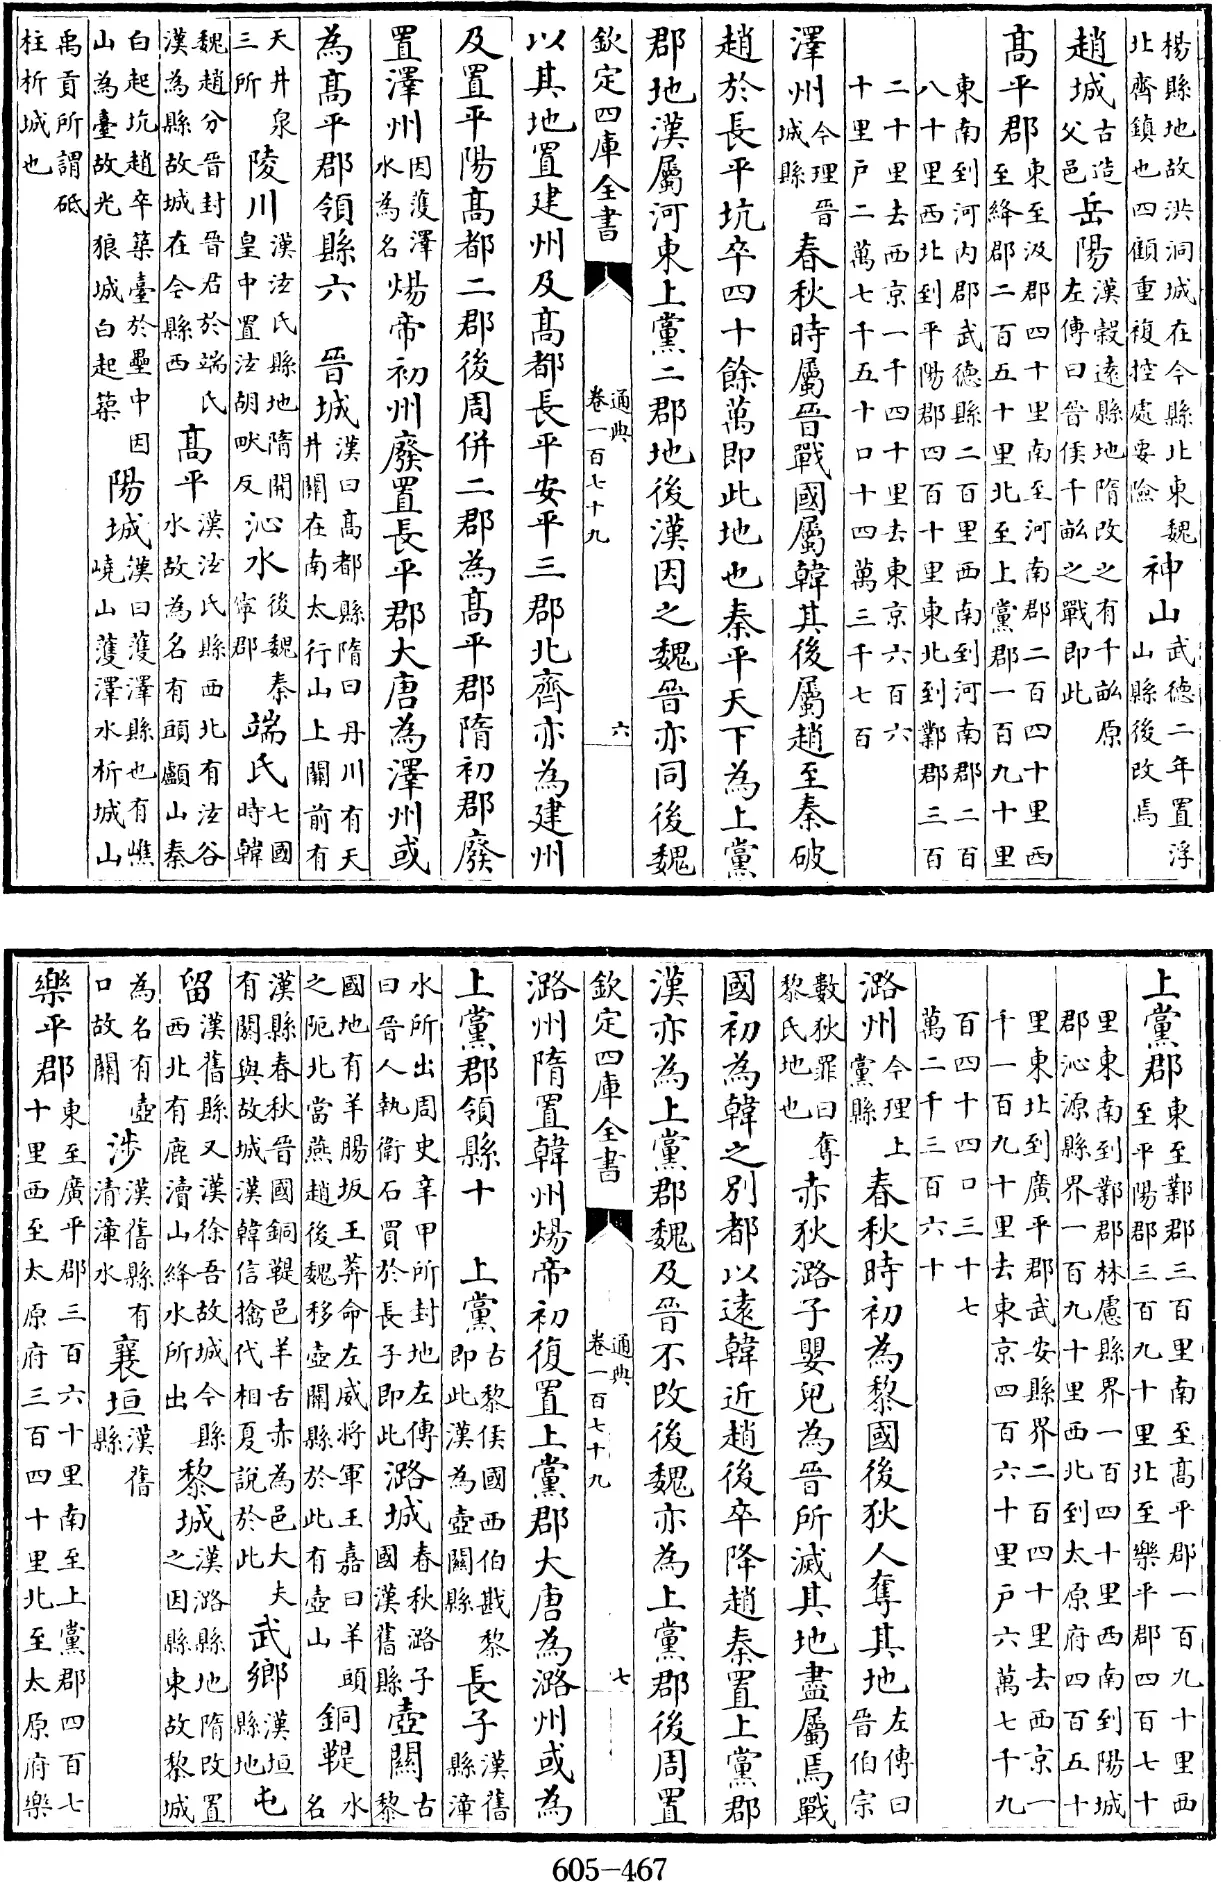 楊縣地故洪洞城在今縣北東魏北齊鎮也四顧重複控處要險神山武德二年置浮山縣後改焉
趙城古造父邑岳陽漢穀遠縣地隋改之有千畝原左傳曰晉侯千畝之戰即此
高平郡東至汲郡四十里南至河南郡二百四十里西至絳郡二百五十里北至上黨郡一百九十里
東南到河内郡武德縣二百里西南到河南郡二百八十里西北到平陽郡四百十里東北到鄴郡三百
二十里去西京一千四十里去東京六百六十里户二萬七千五十口十四萬三千七百
澤州今理晉城縣春秋時屬晉戰國屬韓其後屬趙至秦破
趙於長平坑卒四十餘萬即此地也秦平天下為上黨
郡地漢屬河東上黨二郡地後漢因之魏晉亦同後魏
欽定四庫全書 通典卷一百七十九 六
以其地置建州及高都長平安平三郡北齊亦為建州
及置平陽高都二郡後周併二郡為高平郡隋初郡廢
置澤州因濩澤水為名煬帝初州廢置長平郡大唐為澤州或
為高平郡領縣六 晉城漢曰高都縣隋曰丹川有天井關在南太行山上關前有
天井泉三所陵川漢泫氏縣地隋開皇中置泫胡畎反沁水後魏泰寧郡端氏七國時韓
魏趙分晉封晉君於端氏漢為縣故城在今縣西高平漢泫氏縣西北有泫谷水故為名有頭顱山秦
白起坑趙卒築臺於壘中因山為臺故光狼城白起築陽城漢曰濩澤縣也有嶕嶢山濩澤水析城山
禹貢所謂砥柱析城也
上黨郡東至鄴郡三百里南至高平郡一百九十里西至平陽郡三百九十里北至樂平郡四百七十
里東南到鄴郡林慮縣界一百四十里西南到陽城郡沁源縣界一百九十里西北到太原府四百五十
里東北到廣平郡武安縣界二百四十里去西京一千一百九十里去東京四百六十里户六萬七千九
百四十四口三十七萬二千三百六十
潞州今理上黨縣春秋時初為黎國後狄人奪其地左傳曰晉伯宗
數狄罪曰奪黎氏地也赤狄潞子嬰兒為晉所滅其地盡屬焉戰
國初為韓之別都以遠韓近趙後卒降趙秦置上黨郡
漢亦為上黨郡魏及晉不改後魏亦為上黨郡後周置
欽定四庫全書 通典卷一百七十九 七
潞州隋置韓州煬帝初復置上黨郡大唐為潞州或為
上黨郡領縣十 上黨古黎侯國西伯戡黎即此漢為壺關縣長子漢舊縣漳
水所出周史辛甲所封地左傳曰晉人執衛石買於長子即此潞城春秋潞子國漢舊縣壺關古黎
國地有羊腸坂王莽命左威将軍王嘉曰羊頭之阨北當燕趙後魏移壺關縣於此有壺山銅鞮水名
漢縣春秋晉國銅鞮邑羊舌赤為邑大夫有閼與故城漢韓信擒代相夏説於此武鄉漢垣縣地屯
留漢舊縣又漢徐吾故城今縣西北有鹿瀆山絳水所出黎城漢潞縣地隋改置之因縣東故黎城
為名有壺口故關涉漢舊縣有清漳水襄垣漢舊縣
樂平郡東至廣平郡三百六十里南至上黨郡四百七十里西至太原府三百四十里北至太原府樂
605-467